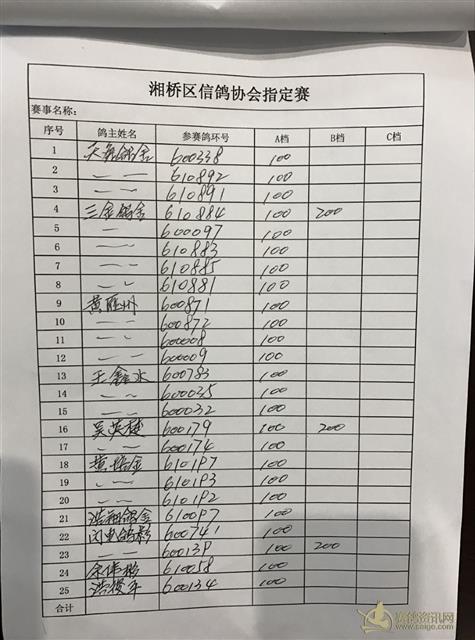 湘桥区信鸽协会指定赛
赛事名称：
序号 鸽主姓名 参赛鸽环号 A档 B档 C档
1 天翔鸽舍 600338 100
2 〃 610892 100
3 〃 610891 100
4 三金鸽舍 610884 100 200
5 〃 600097 100
6 〃 610883 100
7 〃 610885 100
8 〃 610881 100
9 黄 600871 100
10 〃 600872 100
11 〃 600008 100
12 〃 600009 100
13 王鑫水 600783 100
14 〃 600035 100
15 〃 600032 100
16 吴英 600179 100 200
17 〃 600174 100
18 黄 金 610197 100
19 〃 610193 100
20 〃 610192 100
21 浩翔鸽舍 610097 100
22 闪电鸽 600741 100
23 〃 600139 100 200
24 余 610058 100
25 浩 600134 100
合计
赛鸽资讯网
www.saige.com